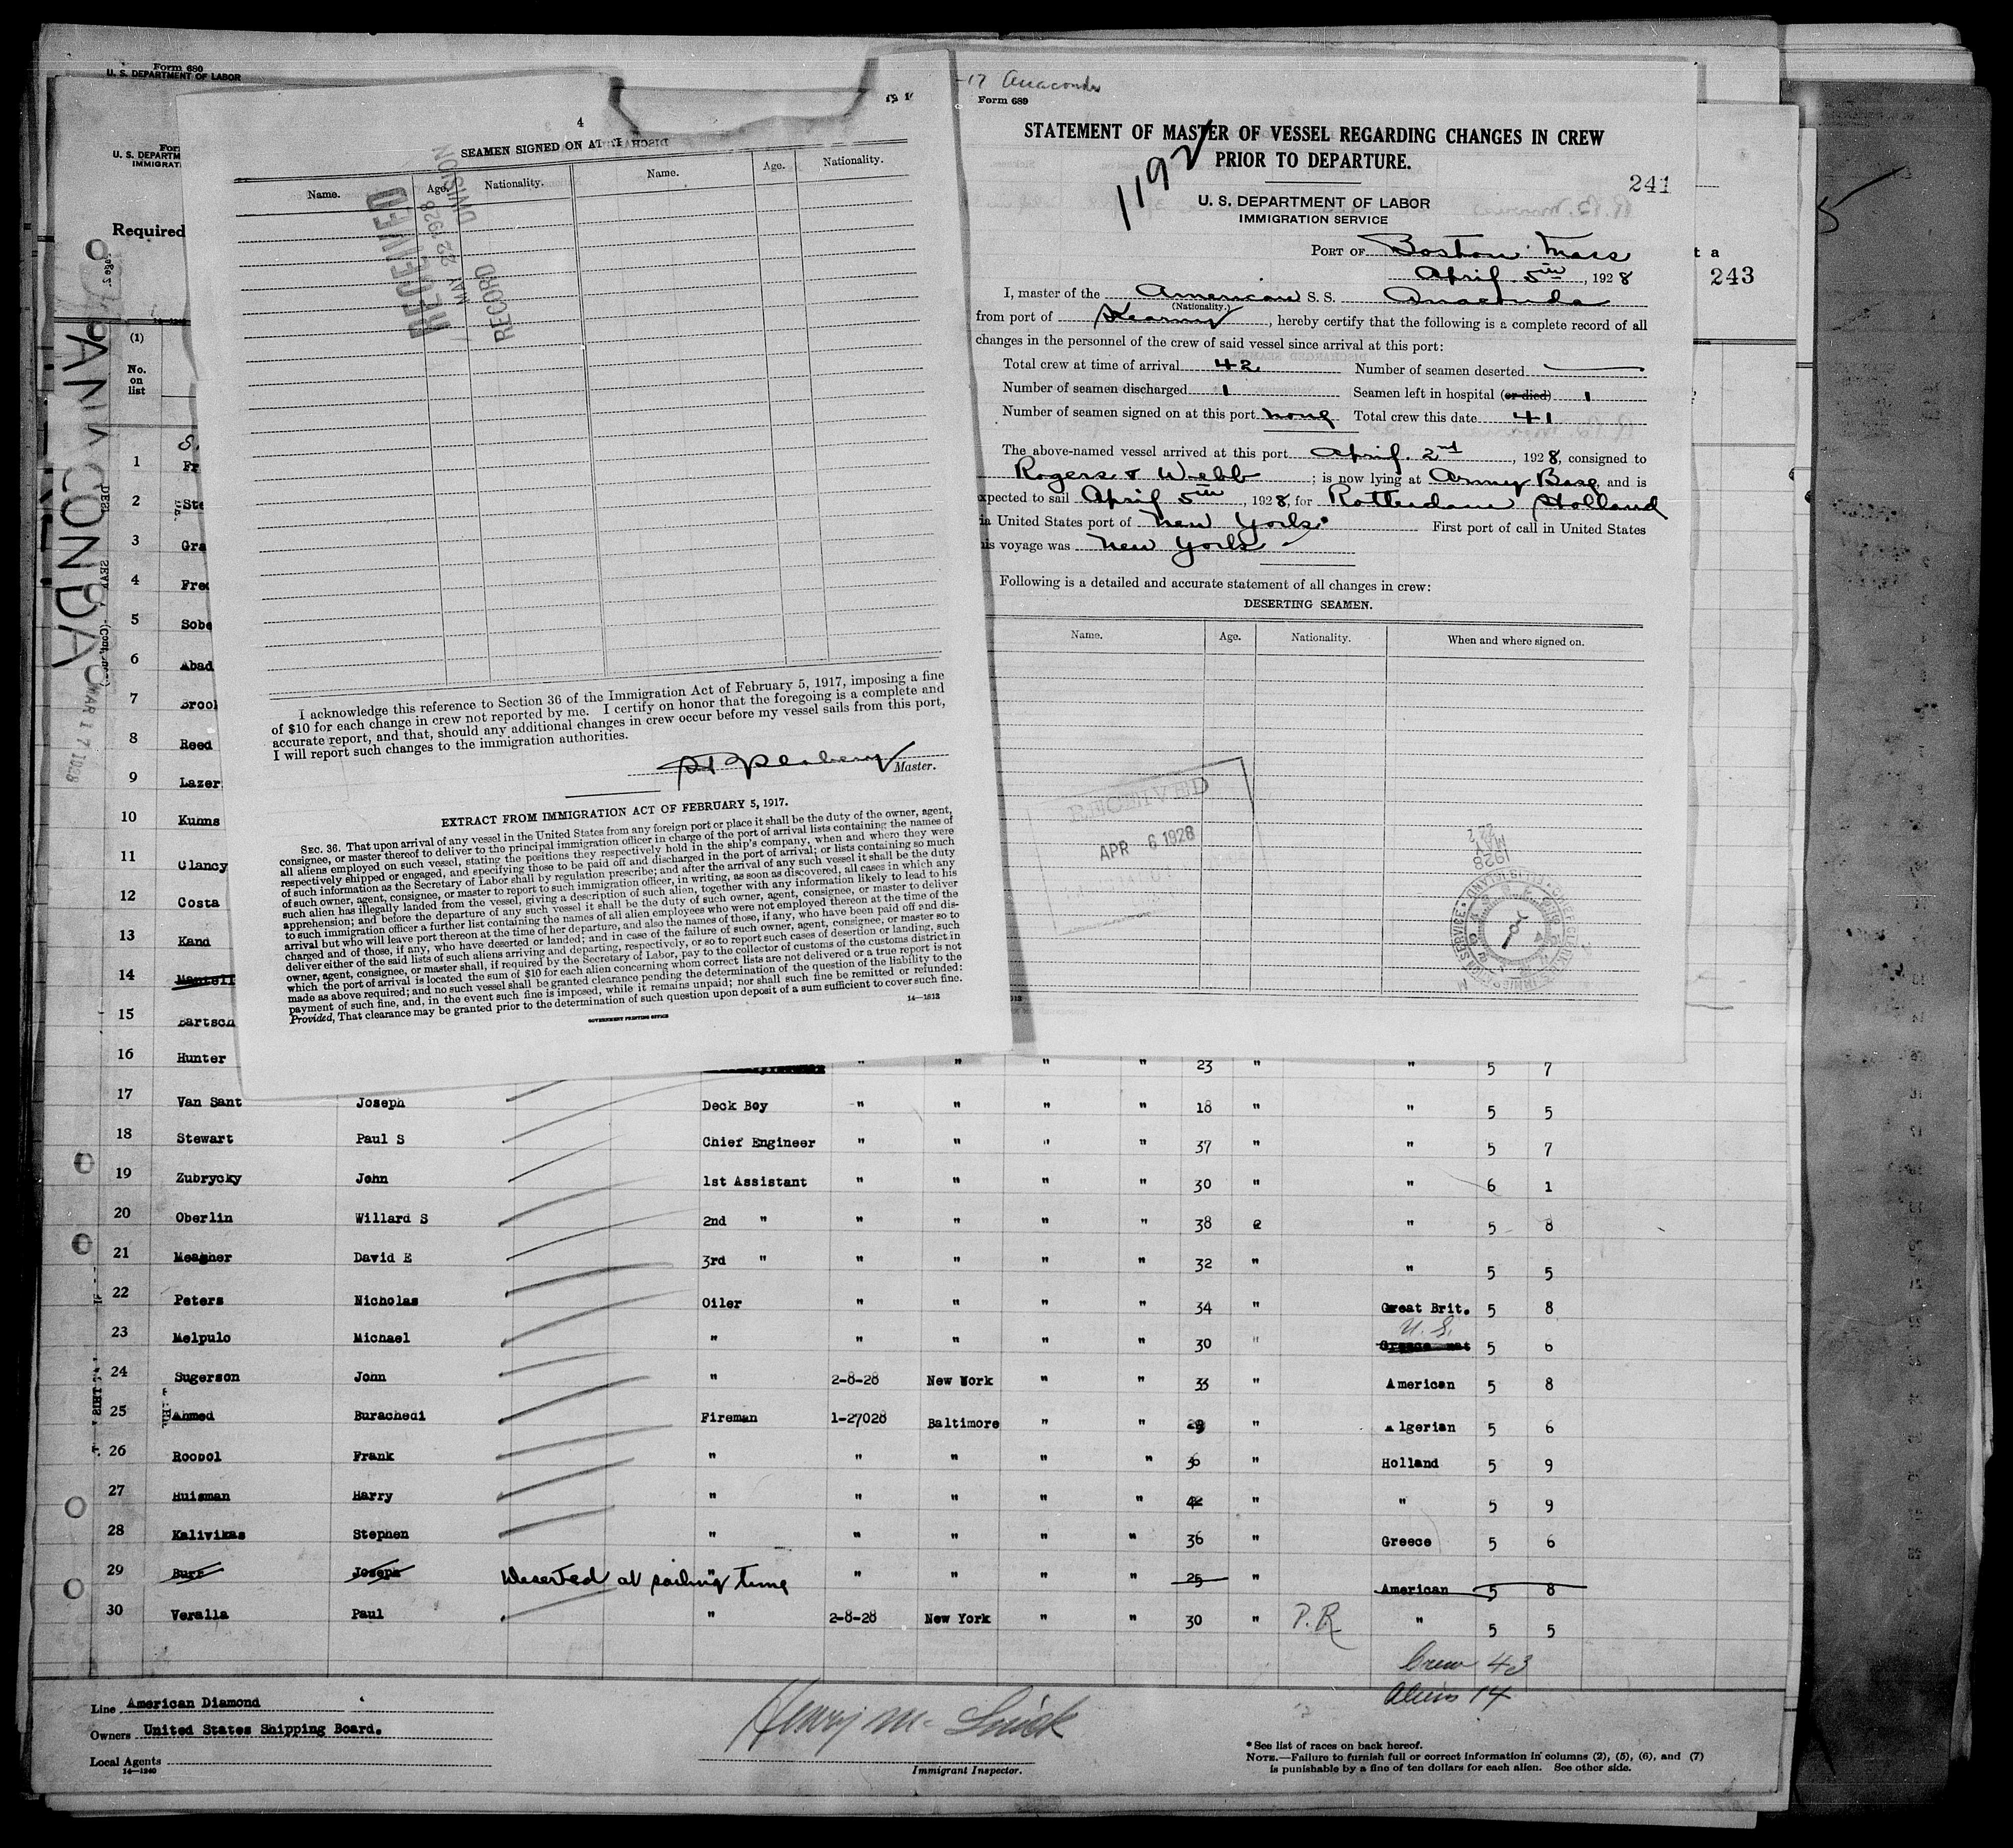 Form 680
U. S. DEPARTMENT OF LABOR
U. S. DEPARTM
IMMIGRAT
Required
ANACONDA
MAR 17 1928
4
SEAMEN SIGNED ON AT
Name. Age. Nationality. Name. Age. Nationality.
RECEIVED
MAY 22 1928
RECORD DIVISION
I acknowledge this reference to Section 36 of the Immigration Act of February 5, 1917, imposing a fine
of $10 for each change in crew not reported by me. I certify on honor that the foregoing is a complete and
accurate report, and that, should any additional changes in crew occur before my vessel sails from this port,
I will report such changes to the immigration authorities.
Master.
EXTRACT FROM IMMIGRATION ACT OF FEBRUARY 5, 1917.
SEC. 36. That upon arrival of any vessel in the United States from any foreign port or place it shall be the duty of the owner, agent,
consignee, or master thereof to deliver to the principal immigration officer in charge of the port of arrival lists containing the names of
all aliens employed on such vessel, stating the positions they respectively hold in the ship's company, when and where they were
respectively shipped or engaged, and specifying those to be paid off and discharged in the port of arrival; or lists containing so much
of such information as the Secretary of Labor shall by regulation prescribe; and after the arrival of any such vessel it shall be the duty
of such owner, agent, consignee, or master to report to such immigration officer, in writing, as soon as discovered, all cases in which any
such alien has illegally landed from the vessel, giving a description of such alien, together with any information likely to lead to his
apprehension; and before the departure of any such vessel it shall be the duty of such owner, agent, consignee, or master to deliver
to such immigration officer a further list containing the names of all alien employees who were not employed thereon at the time of the
arrival but who will leave port thereon at the time of her departure, and also the names of those, if any, who have been paid off and dis-
charged and of those, if any, who have deserted or landed; and in case of the failure of such owner, agent, consignee, or master so to
deliver either of the said lists of such aliens arriving and departing, respectively, or so to report such cases of desertion or landing, such
owner, agent, consignee, or master shall, if required by the Secretary of Labor, pay to the collector of customs of the customs district in
which the port of arrival is located the sum of $10 for each alien concerning whom correct lists are not delivered or a true report is not
made as above required; and no such vessel shall be granted clearance pending the determination of the question of the liability to the
payment of such fine, and, in the event such fine is imposed, while it remains unpaid; nor shall such fine be remitted or refunded:
Provided, That clearance may be granted prior to the determination of such question upon deposit of a sum sufficient to cover such fine.
14—1313
GOVERNMENT PRINTING OFFICE
-17 Anaconda
Form 689
STATEMENT OF MASTER OF VESSEL REGARDING CHANGES IN CREW
PRIOR TO DEPARTURE.
1192
241
U. S. DEPARTMENT OF LABOR
IMMIGRATION SERVICE
PORT OF Boston Mass
April 5th, 1928
243
I, master of the American S. S. Anaconda
(Nationality.)
from port of Kearny, hereby certify that the following is a complete record of all
changes in the personnel of the crew of said vessel since arrival at this port:
Total crew at time of arrival 42 Number of seamen deserted
Number of seamen discharged 1 Seamen left in hospital (or died) 1
Number of seamen signed on at this port none Total crew this date 41
The above-named vessel arrived at this port April 2nd, 1928, consigned to
Rogers & Webb; is now lying at Army Base, and is
xpected to sail April 5th, 1928, for Rotterdam Holland
ia United States port of New York. First port of call in United States
his voyage was New York
Following is a detailed and accurate statement of all changes in crew:
DESERTING SEAMEN.
Name. Age. Nationality. When and where signed on.
RECEIVED
APR 6 1928
(1)
No.
on
list
1 Fr
2 Ste
3 Gra
4 Fred
5 Sobe
6 Abad
7 Brook
8 Reed
9 Lazer
10 Kuhns
11 Clancy
12 Costa
13 Kand
14 Mantell
15 Bartsch
16 Hunter " " " " 23 " " 5 7
17 Van Sant Joseph Deck Boy " " " " 18 " " 5 5
18 Stewart Paul S Chief Engineer " " " " 37 " " 5 7
19 Zubrycky John 1st Assistant " " " " 30 " " 6 1
20 Oberlin Willard S 2nd " " " " " 38 " " 5 8
21 Meagher David E 3rd " " " " " 32 " " 5 5
22 Peters Nicholas Oiler " " " " 34 " Great Brit. 5 8
23 Melpulo Michael " " " " " 30 " U. S. 5 6
24 Sugerson John " 2-8-28 New York " " 33 " American 5 8
25 Ahmed Burachedi Fireman 1-27028 Baltimore " " 29 " Algerian 5 6
26 Roobol Frank " " " " " 36 " Holland 5 9
27 Huisman Harry " " " " " 42 " " 5 9
28 Kalivikas Stephen " " " " " 36 " Greece 5 6
29 Burr Joseph Deserted at sailing time " " " " " 25 " American 5 8
30 Veralla Paul " 2-8-28 New York " " 30 " P.R. " 5 5
Crew 43
Aliens 14
Line American Diamond
Owners United States Shipping Board.
Local Agents
14—1240
Immigrant Inspector.
* See list of races on back hereof.
NOTE.—Failure to furnish full or correct information in columns (2), (5), (6), and (7)
is punishable by a fine of ten dollars for each alien. See other side.